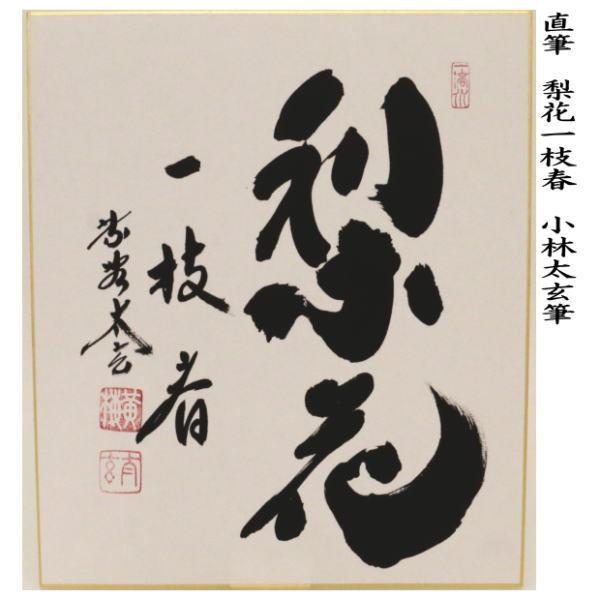 直筆 梨花一枝春 小林太玄筆
梨花
一枝春
紫野太玄